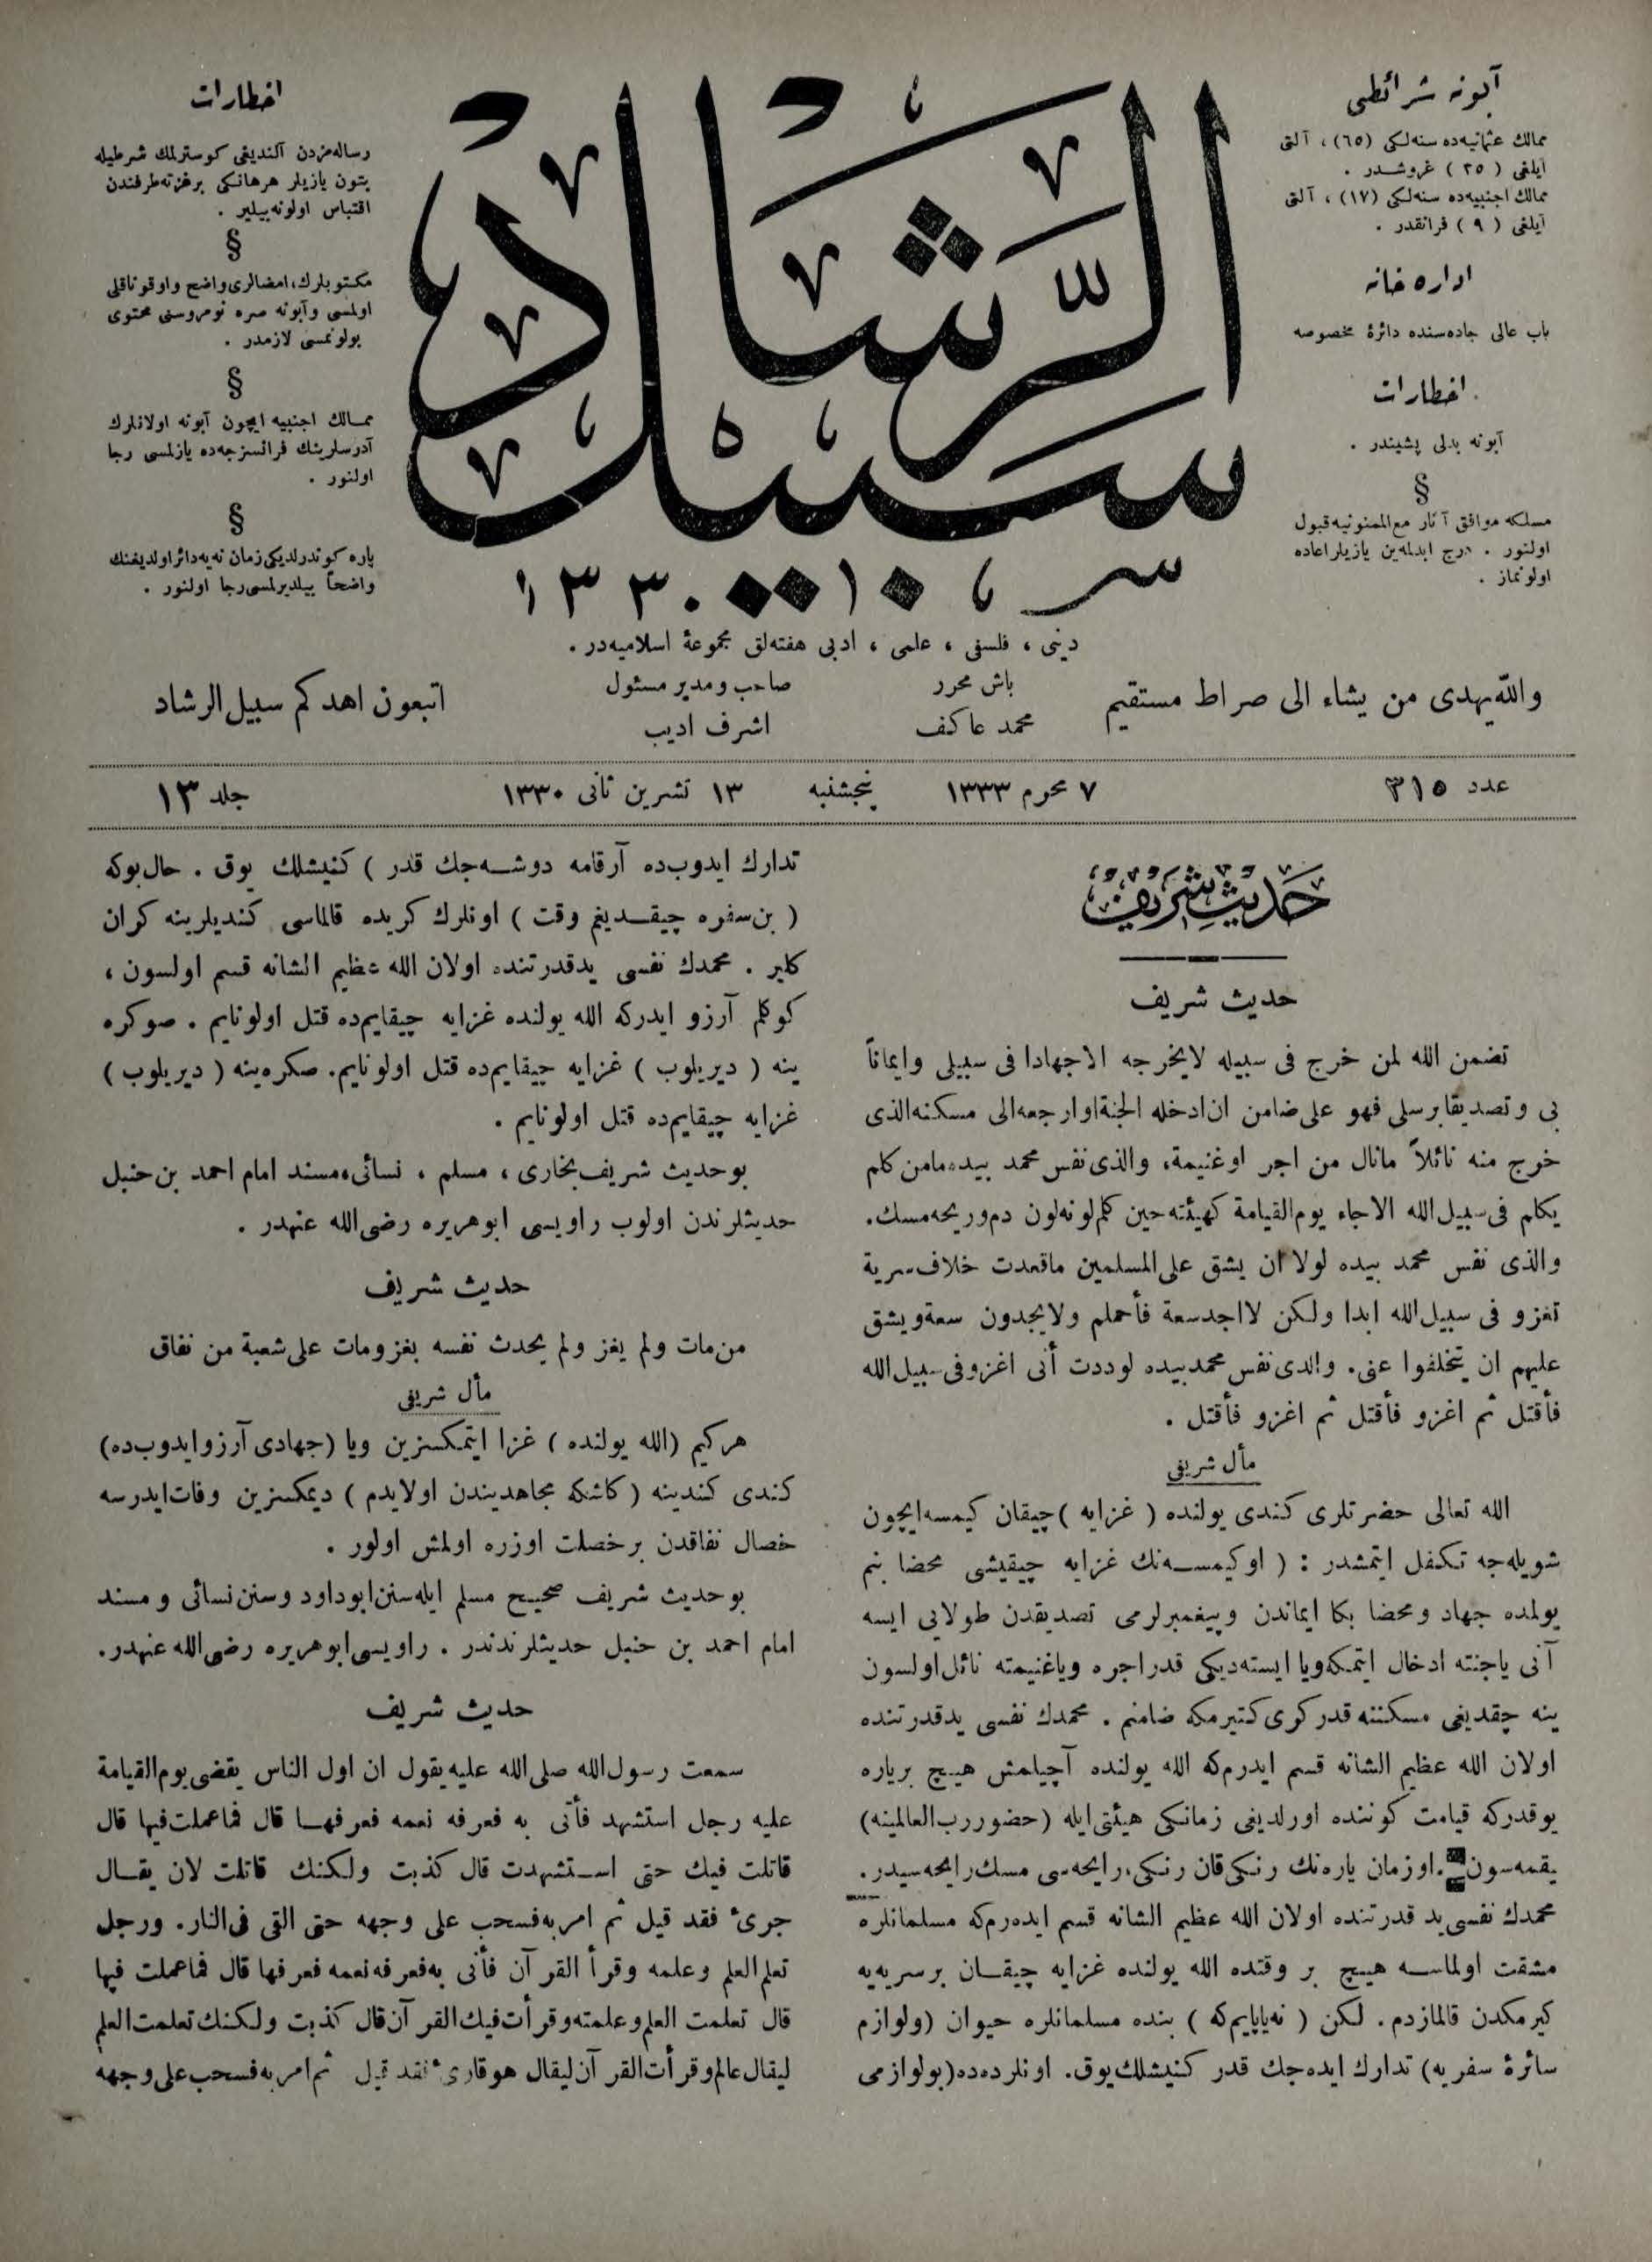 آبونه شرائطی
ممالك عثمانیه‌ده سنه‌لكی (٦٥) ، آلتی
آیلغی ( ٣٥ ) غروشدر .
ممالك اجنبیه‌ده سنه‌لكی (١٧) ، آلتی
آیلغی ( ٩ ) فرانقدر .
اداره خانه
باب عالی جاده‌سنده دائرۀ مخصوصه
اخطارات
آبونه بدلی پشیندر .
§
مسلكه موافق آثار مع‌الممنونیه قبول
اولنور . درج ایدلمه‌ین یازیلر اعاده
اولونماز .
سبیل الرشاد
١٣٣٠
اخطارات
رساله‌مزدن آلندیغی كوسترلمك شرطیله
بتون یازیلر هرهانكی برغزته‌طرفندن
اقتباس اولونه‌بیلیر .
§
مكتوبلرك، امضالری واضح واوقوناقلی
اولمسی وآبونه صره نومروسنی محتوی
بولونمسی لازمدر .
§
ممالك اجنبیه ایچون آبونه اولانلرك
آدرسلرینك فرانسزجه‌ده یازلمسی رجا
اولنور .
§
پاره كوندرلدیكی زمان نه‌یه‌دائر اولدیغنك
واضحاً بیلدیرلمسی رجا اولنور .
دینی ، فلسفی ، علمی ، ادبی هفته‌لق مجموعۀ اسلامیه‌در .
والله یهدی من یشاء الی صراط مستقیم
باش محرر
محمد عاكف
صاحب و مدیر مسئول
اشرف ادیب
اتبعون اهدكم سبیل الرشاد
عدد ٣١٥
٧ محرم ١٣٣٣ پنجشنبه ١٣ تشرین ثانی ١٣٣٠
جلد ١٣
حدیث شریف
حدیث شریف
تضمن الله لمن خرج فی سبیله لایخرجه الاجهادا فی سبیلی وایماناً
بی وتصدیقا برسلی فهو علی ضامن ان ادخله الجنة او ارجعه الی مسكنه الذی
خرج منه نائلاً مانال من اجر اوغنیمة، والذی نفس محمد بیده مامن كلم
یكلم فی سبیل الله الاجاء یوم القیامة كهیئته حین كلم لونه لون دم وریحه مسك.
والذی نفس محمد بیده لولا ان یشق علی المسلمین ماقعدت خلاف سریة
تغزو فی سبیل الله ابدا ولكن لااجد سعة فأحملهم ولایجدون سعة ویشق
علیهم ان یتخلفوا عنی. والذی نفس محمد بیده لوددت أنی اغزو فی سبیل الله
فأقتل ثم اغزو فأقتل ثم اغزو فأقتل .
مأل شریفی
الله تعالی حضرتلری كندی یولنده ( غزایه ) چیقان كیمسه ایچون
شویله‌جه تكفل ایتمشدر : ( اوكیمسه‌نك غزایه چیقیشی محضا بنم
یولمده جهاد ومحضا بكا ایماندن وپیغمبرلرمی تصدیقدن طولایی ایسه
آنی یاجنته ادخال ایتمكه‌ویا ایسته‌دیكی قدر اجره ویاغنیمته نائل اولسون
ینه چقدیغی مسكننه قدر كری كتیرمكه ضامنم . محمدك نفسی یدقدرتنده
اولان الله عظیم الشانه قسم ایدرم‌كه الله یولنده آچیلمش هیچ بریاره
یوقدركه قیامت كوننده اورلدیغی زمانكی هیئتی ایله (حضور رب العالمینه)
یقمه‌سون. اوزمان یاره‌نك رنكی قان رنكی، رایحه‌سی مسك رایحه‌سیدر.
محمدك نفسی ید قدرتنده اولان الله عظیم الشانه قسم ایده‌رم‌كه مسلمانلره
مشقت اولماسه هیچ بر وقتده الله یولنده غزایه چیقان برسریه‌یه
كیرمكدن قالمازدم. لكن ( نه‌یاپایم‌كه ) بنده مسلمانلره حیوان (ولوازم
سائرۀ سفریه) تدارك ایده‌جك قدر كنیشلك یوق. اونلرده‌ده (بولوازمی
تدارك ایدوب‌ده آرقامه دوشه‌جك قدر ) كنیشلك یوق . حال بوكه
( بن سفره چیقدیغم وقت ) اونلرك كریده قالماسی كندیلرینه كران
كلیر . محمدك نفسی یدقدرتنده اولان الله عظیم الشانه قسم اولسون ،
كوكلم آرزو ایدركه الله یولنده غزایه چیقایم‌ده قتل اولونایم . صوكره
ینه ( دیریلوب ) غزایه چیقایم‌ده قتل اولونایم. صكره ینه ( دیریلوب )
غزایه چیقایم‌ده قتل اولونایم .
بوحدیث شریف بخاری ، مسلم ، نسائی، مسند امام احمد بن حنبل
حدیثلرندن اولوب راویسی ابوهریره رضی الله عنهدر .
حدیث شریف
من مات ولم یغز ولم یحدث نفسه بغزو مات علی شعبة من نفاق
مأل شریفی
هركیم (الله یولنده ) غزا ایتمكسزین ویا (جهادی آرزو ایدوب‌ده)
كندی كندینه ( كاشكه مجاهدیندن اولایدم ) دیمكسزین وفات ایدرسه
خصال نفاقدن برخصلت اوزره اولمش اولور .
بوحدیث شریف صحیح مسلم ایله سنن ابوداود وسنن نسائی ومسند
امام احمد بن حنبل حدیثلرندندر . راویسی ابوهریره رضی الله عنهدر.
حدیث شریف
سمعت رسول الله صلی الله علیه یقول ان اول الناس یقضی یوم القیامة
علیه رجل استشهد فأتی به فعرفه نعمه فعرفها قال فماعملت فیها قال
قاتلت فیك حتی استشهدت قال كذبت ولكنك قاتلت لان یقال
جریء فقد قیل ثم امر به فسحب علی وجهه حتی القی فی النار. ورجل
تعلم العلم وعلمه وقرأ القرآن فأتی به فعرفه نعمه فعرفها قال فماعملت فیها
قال تعلمت العلم وعلمته وقرأت فیك القرآن قال كذبت ولكنك تعلمت العلم
لیقال عالم وقرأت القرآن لیقال هوقاریء فقد قیل ثم امر به فسحب علی وجهه